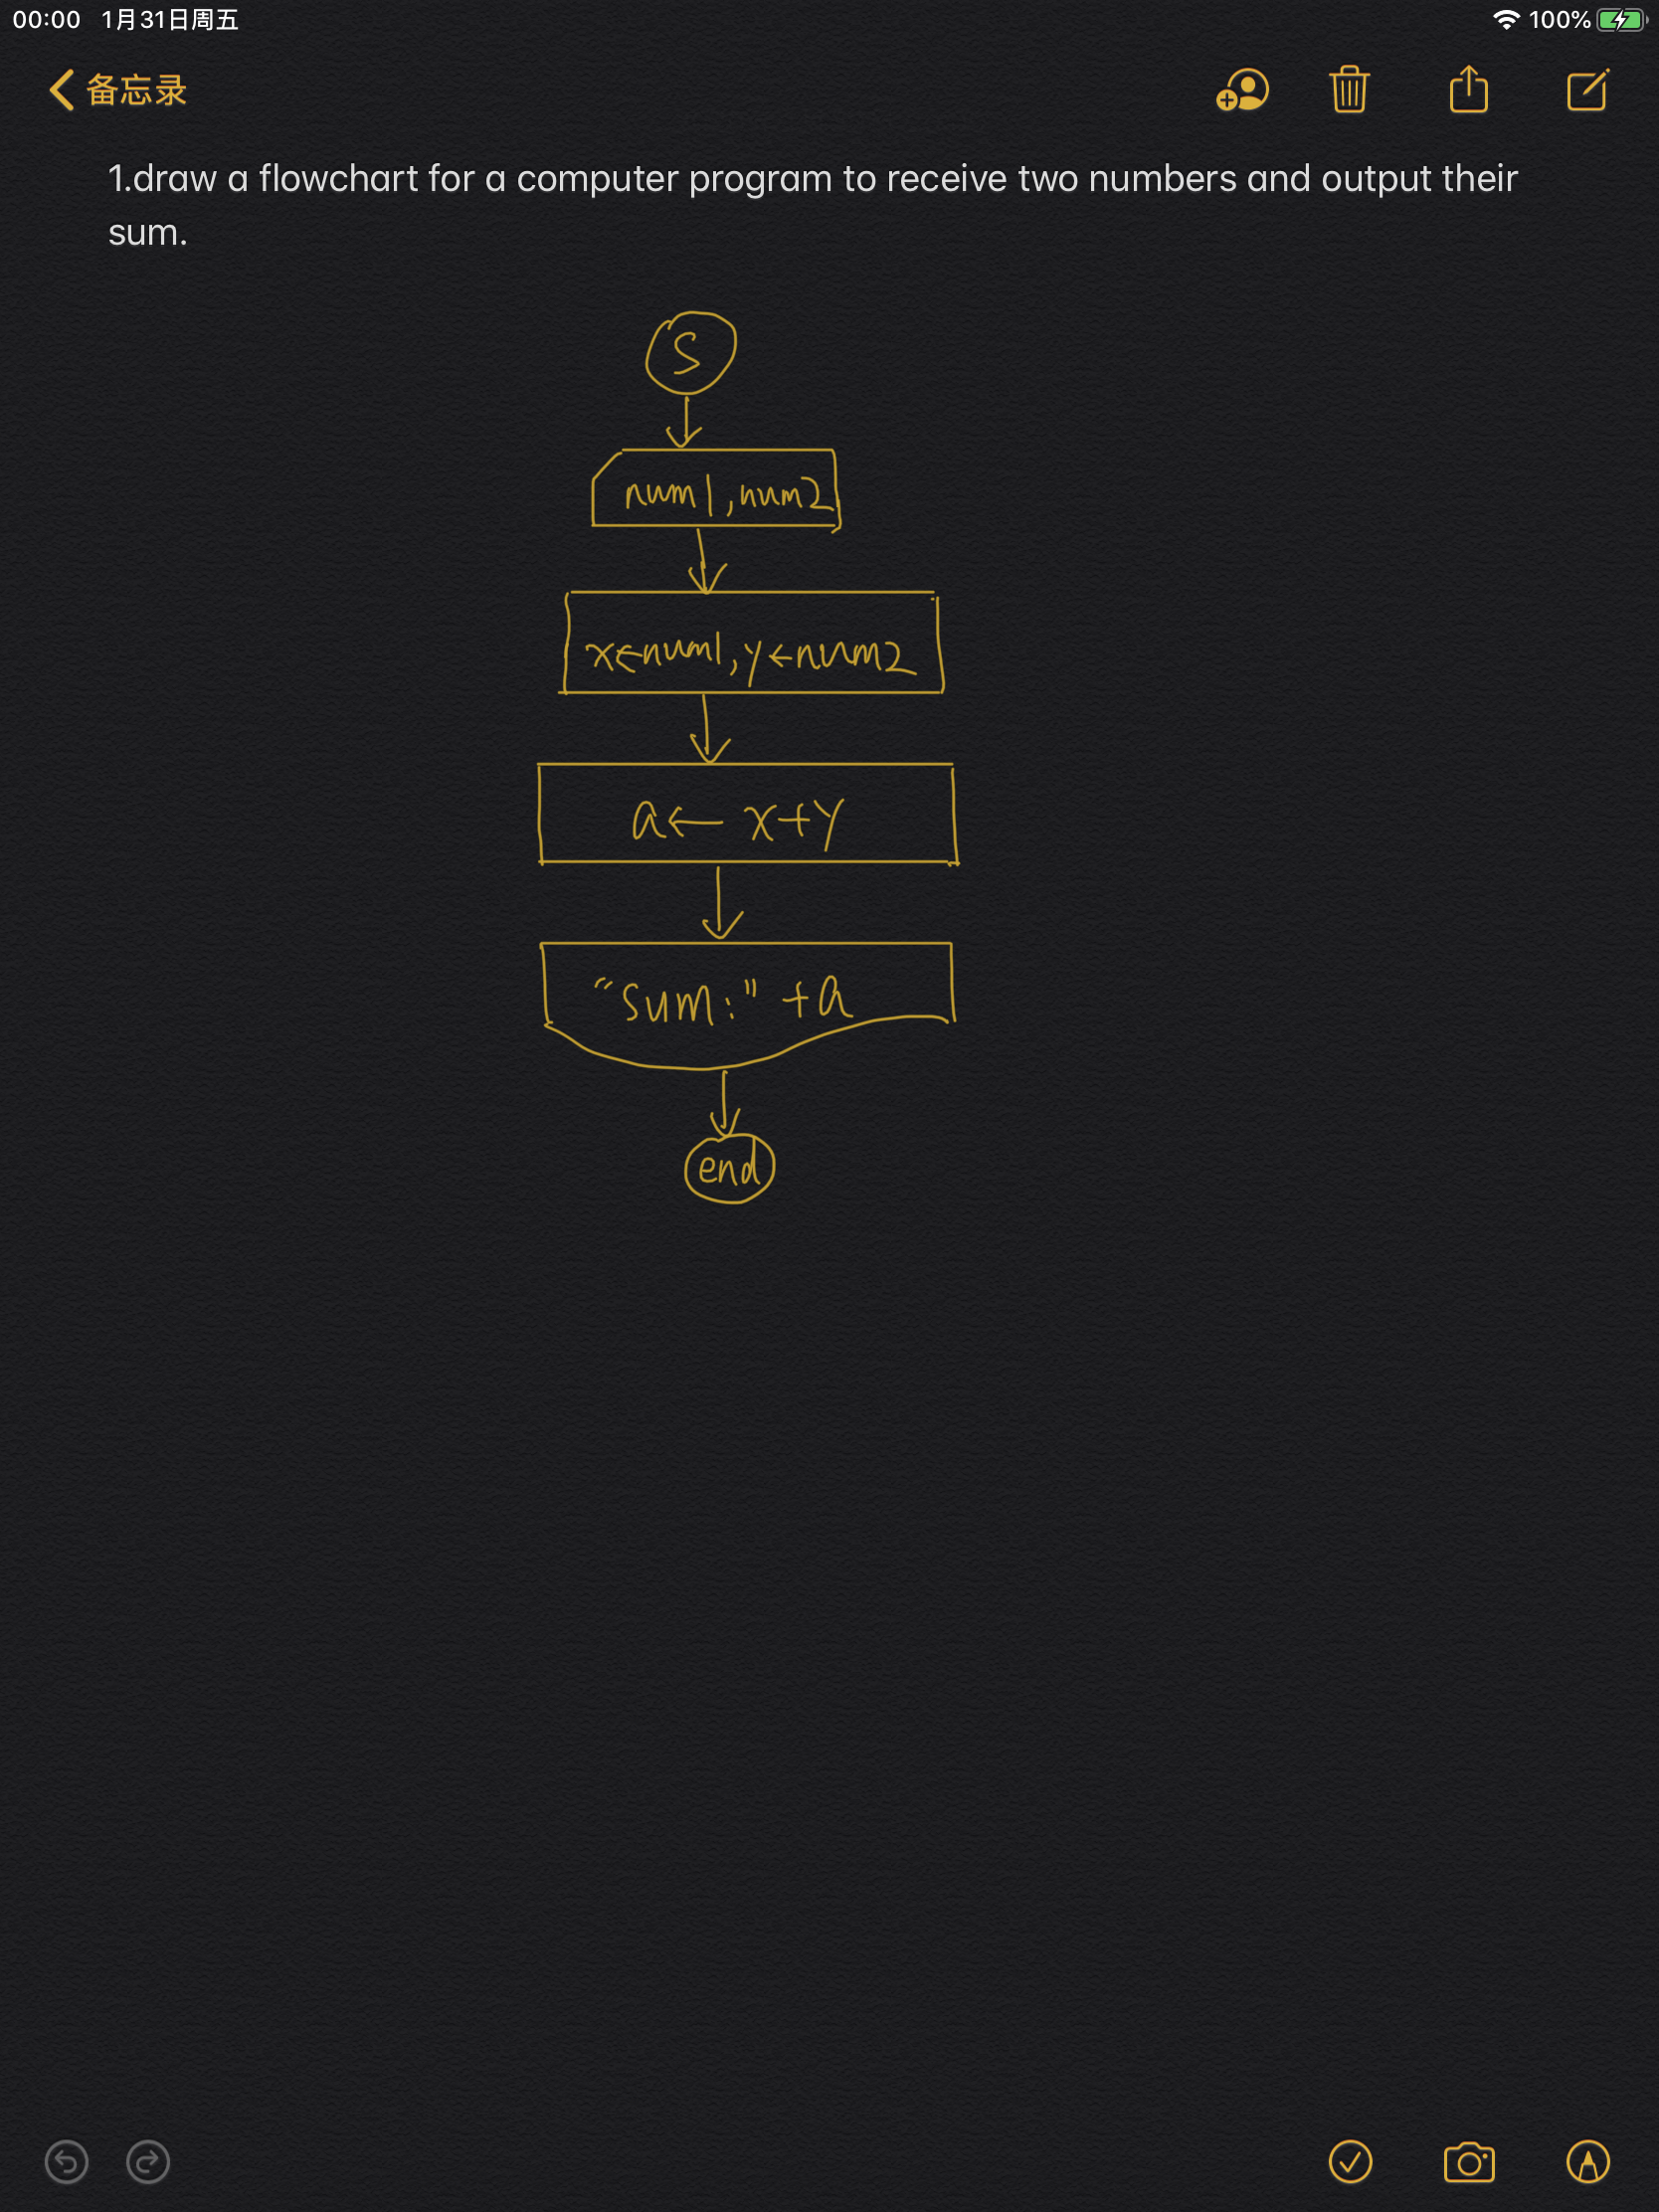 00:00 1月31日周五 100%
备忘录
1.draw a flowchart for a computer program to receive two numbers and output their
sum.
S
num1,num2
x←num1,y←num2
a← x+y
"sum:" +a
end